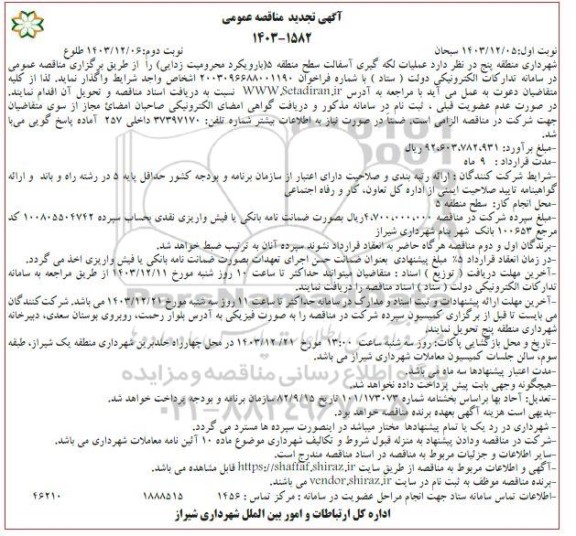 آگهی تجدید مناقصه عمومی
۱۴۰۳-۱۵۸۲
نوبت اول:۱۴۰۳/۱۲/۰۵ سبحان نوبت دوم:۱۴۰۳/۱۲/۰۶ طلوع
شهرداری منطقه پنج در نظر دارد عملیات لکه گیری آسفالت سطح منطقه ۵(بارویکرد محرومیت زدایی) را از طریق برگزاری مناقصه عمومی
در سامانه تدارکات الکترونیکی دولت ( ستاد ) با شماره فراخوان ۲۰۰۳۰۹۶۶۸۸۰۰۱۱۹۰ اشخاص واجد شرایط واگذار نماید. لذا از کلیه
متقاضیان دعوت به عمل می آید با مراجعه به آدرس WWW.Setadiran.ir نسبت به دریافت اسناد مناقصه و تحویل آن اقدام نمایند.
در صورت عدم عضویت قبلی ، ثبت نام در سامانه مذکور و دریافت گواهی امضای الکترونیکی صاحبان امضائ مجاز از سوی متقاضیان
جهت شرکت در مناقصه الزامی است. ضمناً در صورت نیاز به اطلاعات بیشتر شماره تلفن: ۳۷۳۹۷۱۷۰ داخلی ۲۵۷ آماده پاسخ گویی می‌با
شد.
-مبلغ برآورد: ۹۲،۶۰۳،۷۸۲،۹۳۱ ریال
-مدت قرارداد : ۹ ماه
-شرایط شرکت کنندگان : ارائه رتبه بندی و صلاحیت دارای اعتبار از سازمان برنامه و بودجه کشور حداقل پایه ۵ در رشته راه و باند و ارائه
گواهینامه تایید صلاحیت ایمنی از اداره کل تعاون، کار و رفاه اجتماعی
-محل انجام کار: سطح منطقه ۵
-مبلغ سپرده شرکت در مناقصه ۴،۷۰۰،۰۰۰،۰۰۰ریال بصورت ضمانت نامه بانکی یا فیش واریزی نقدی بحساب سپرده ۱۰۰۸۰۵۵۰۴۷۴۲ کد
مرجع ۱۰۰۶۵۳ بانک شهر بنام شهرداری شیراز
-برندگان اول و دوم مناقصه هرگاه حاضر به انعقاد قرارداد نشوند سپرده آنان به ترتیب ضبط خواهد شد.
-در زمان انعقاد قرارداد ۵٪ مبلغ پیشنهادی بعنوان ضمانت حسن اجرای تعهدات بصورت ضمانت نامه بانکی یا فیش واریزی اخذ می گردد.
-آخرین مهلت دریافت ( توزیع ) اسناد : متقاضیان میتوانند حداکثر تا ساعت ۱۰ روز شنبه مورخ ۱۴۰۳/۱۲/۱۱ از طریق مراجعه به سامانه
تدارکات الکترونیکی دولت ( ستاد ) اسناد مناقصه را دریافت نمایند.
-آخرین مهلت ارائه پیشنهادات و ثبت اسناد و مدارک در سامانه حداکثر تا ساعت ۱۱ روز سه شنبه مورخ ۱۴۰۳/۱۲/۲۱ می باشد. شرکت‌کنندگان
می بایست تا قبل از برگزاری کمیسیون سپرده شرکت در مناقصه را به صورت فیزیکی به آدرس بلوار رحمت، روبروی بوستان سعدی، دبیرخانه
شهرداری منطقه پنج تحویل نمایند.
-تاریخ و محل بازگشایی پاکات: روز سه شنبه ساعت ۱۳:۰۰ مورخ ۱۴۰۳/۱۲/۲۱ در محل چهارراه خلدبرین شهرداری منطقه یک شیراز، طبقه
سوم، سالن جلسات کمیسیون معاملات شهرداری شیراز می باشد.
-مدت اعتبار پیشنهادها سه ماه می باشد.
-هیچگونه وجهی بابت پیش پرداخت داده نخواهد شد.
-تعدیل: آحاد بها براساس بخشنامه شماره ۱۰۱/۱۷۳۰۷۳ تاریخ ۸۲/۹/۱۵ سازمان برنامه و بودجه پرداخت خواهد شد.
-بدیهی است هزینه آگهی بعهده برنده مناقصه خواهد بود.
- شهرداری در رد یک یا تمام پیشنهادها مختار میباشد در اینصورت سپرده ها مسترد می گردد.
-شرکت در مناقصه ودادن پیشنهاد به منزله قبول شروط و تکالیف شهرداری موضوع ماده ۱۰ آئین نامه معاملات شهرداری می باشد.
-سایر اطلاعات و جزئیات مربوط به مناقصه در اسناد مناقصه مندرج است.
-آگهی و اطلاعات مربوط به مناقصه از طریق سایت https://shaffaf.shiraz.ir قابل مشاهده می باشد.
-برنده مناقصه موظف به ثبت نام در سایت vendor.shiraz.ir می باشند.
-اطلاعات تماس سامانه ستاد جهت انجام مراحل عضویت در سامانه : مرکز تماس : ۱۴۵۶ ۱۸۸۸۵۱۵ ۴۶۲۱۰
اداره کل ارتباطات و امور بین الملل شهرداری شیراز